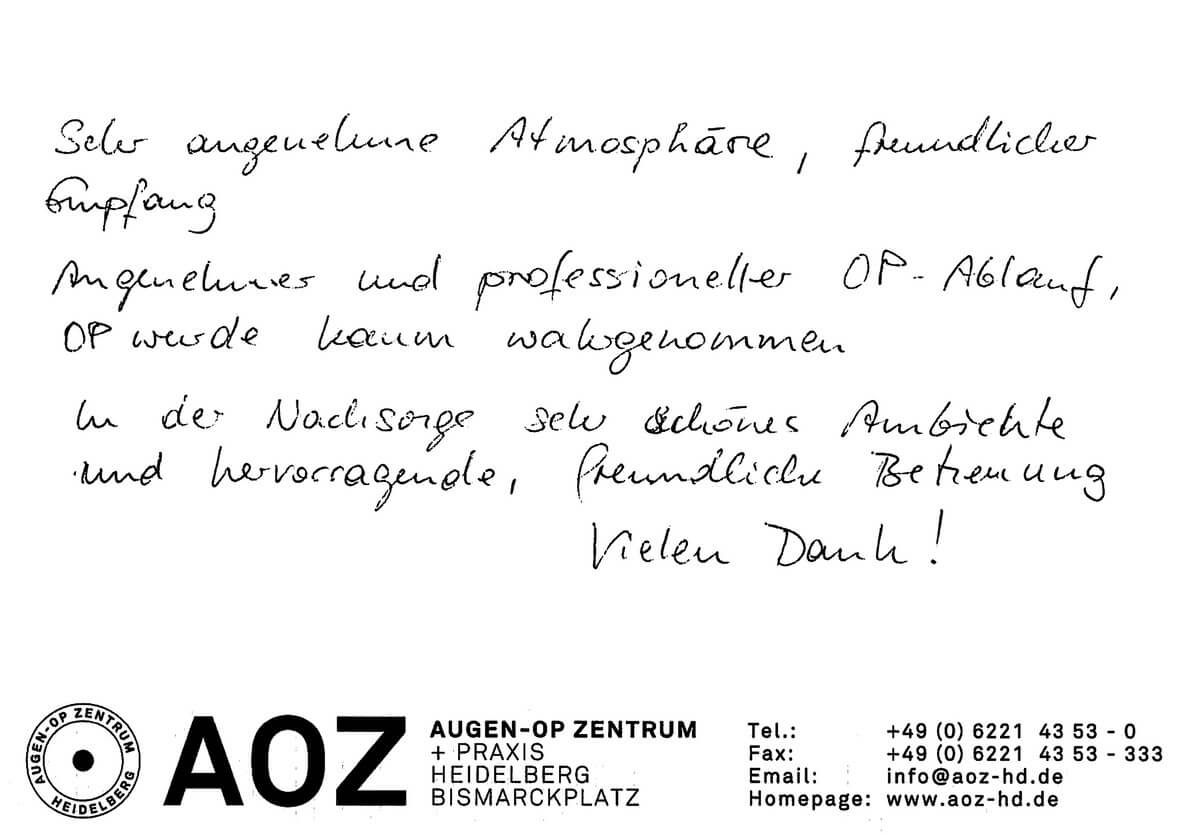 Sehr angenehme Atmosphäre, freundlicher
Empfang
Angenehmer und professioneller OP-Ablauf,
OP wurde kaum wahrgenommen
In der Nachsorge sehr schönes Ambiente
und hervorragende, freundliche Betreuung
Vielen Dank!
AUGEN-OP ZENTRUM HEIDELBERG
AOZ
AUGEN-OP ZENTRUM
+ PRAXIS
HEIDELBERG
BISMARCKPLATZ
Tel.: +49 (0) 6221 43 53 - 0
Fax: +49 (0) 6221 43 53 - 333
Email: info@aoz-hd.de
Homepage: www.aoz-hd.de